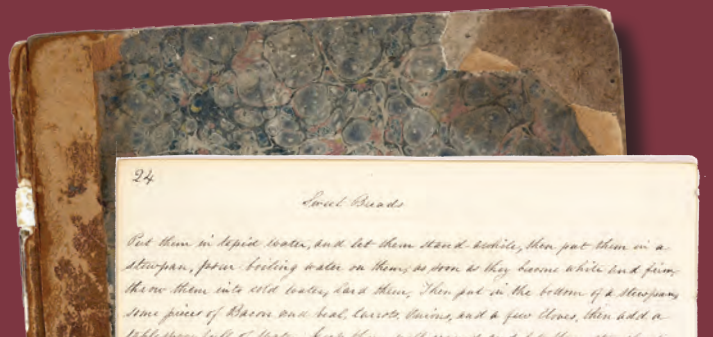 24
Sweet Breads
Put them in tepid water, and let them stand awhile, then put them in a
stewpan, pour boiling water on them, as soon as they become white and firm,
throw them into cold water, lard them, Then put in the bottom of a stewpan,
some pieces of Bacon and veal, carrots, onions, and a few cloves, then add a